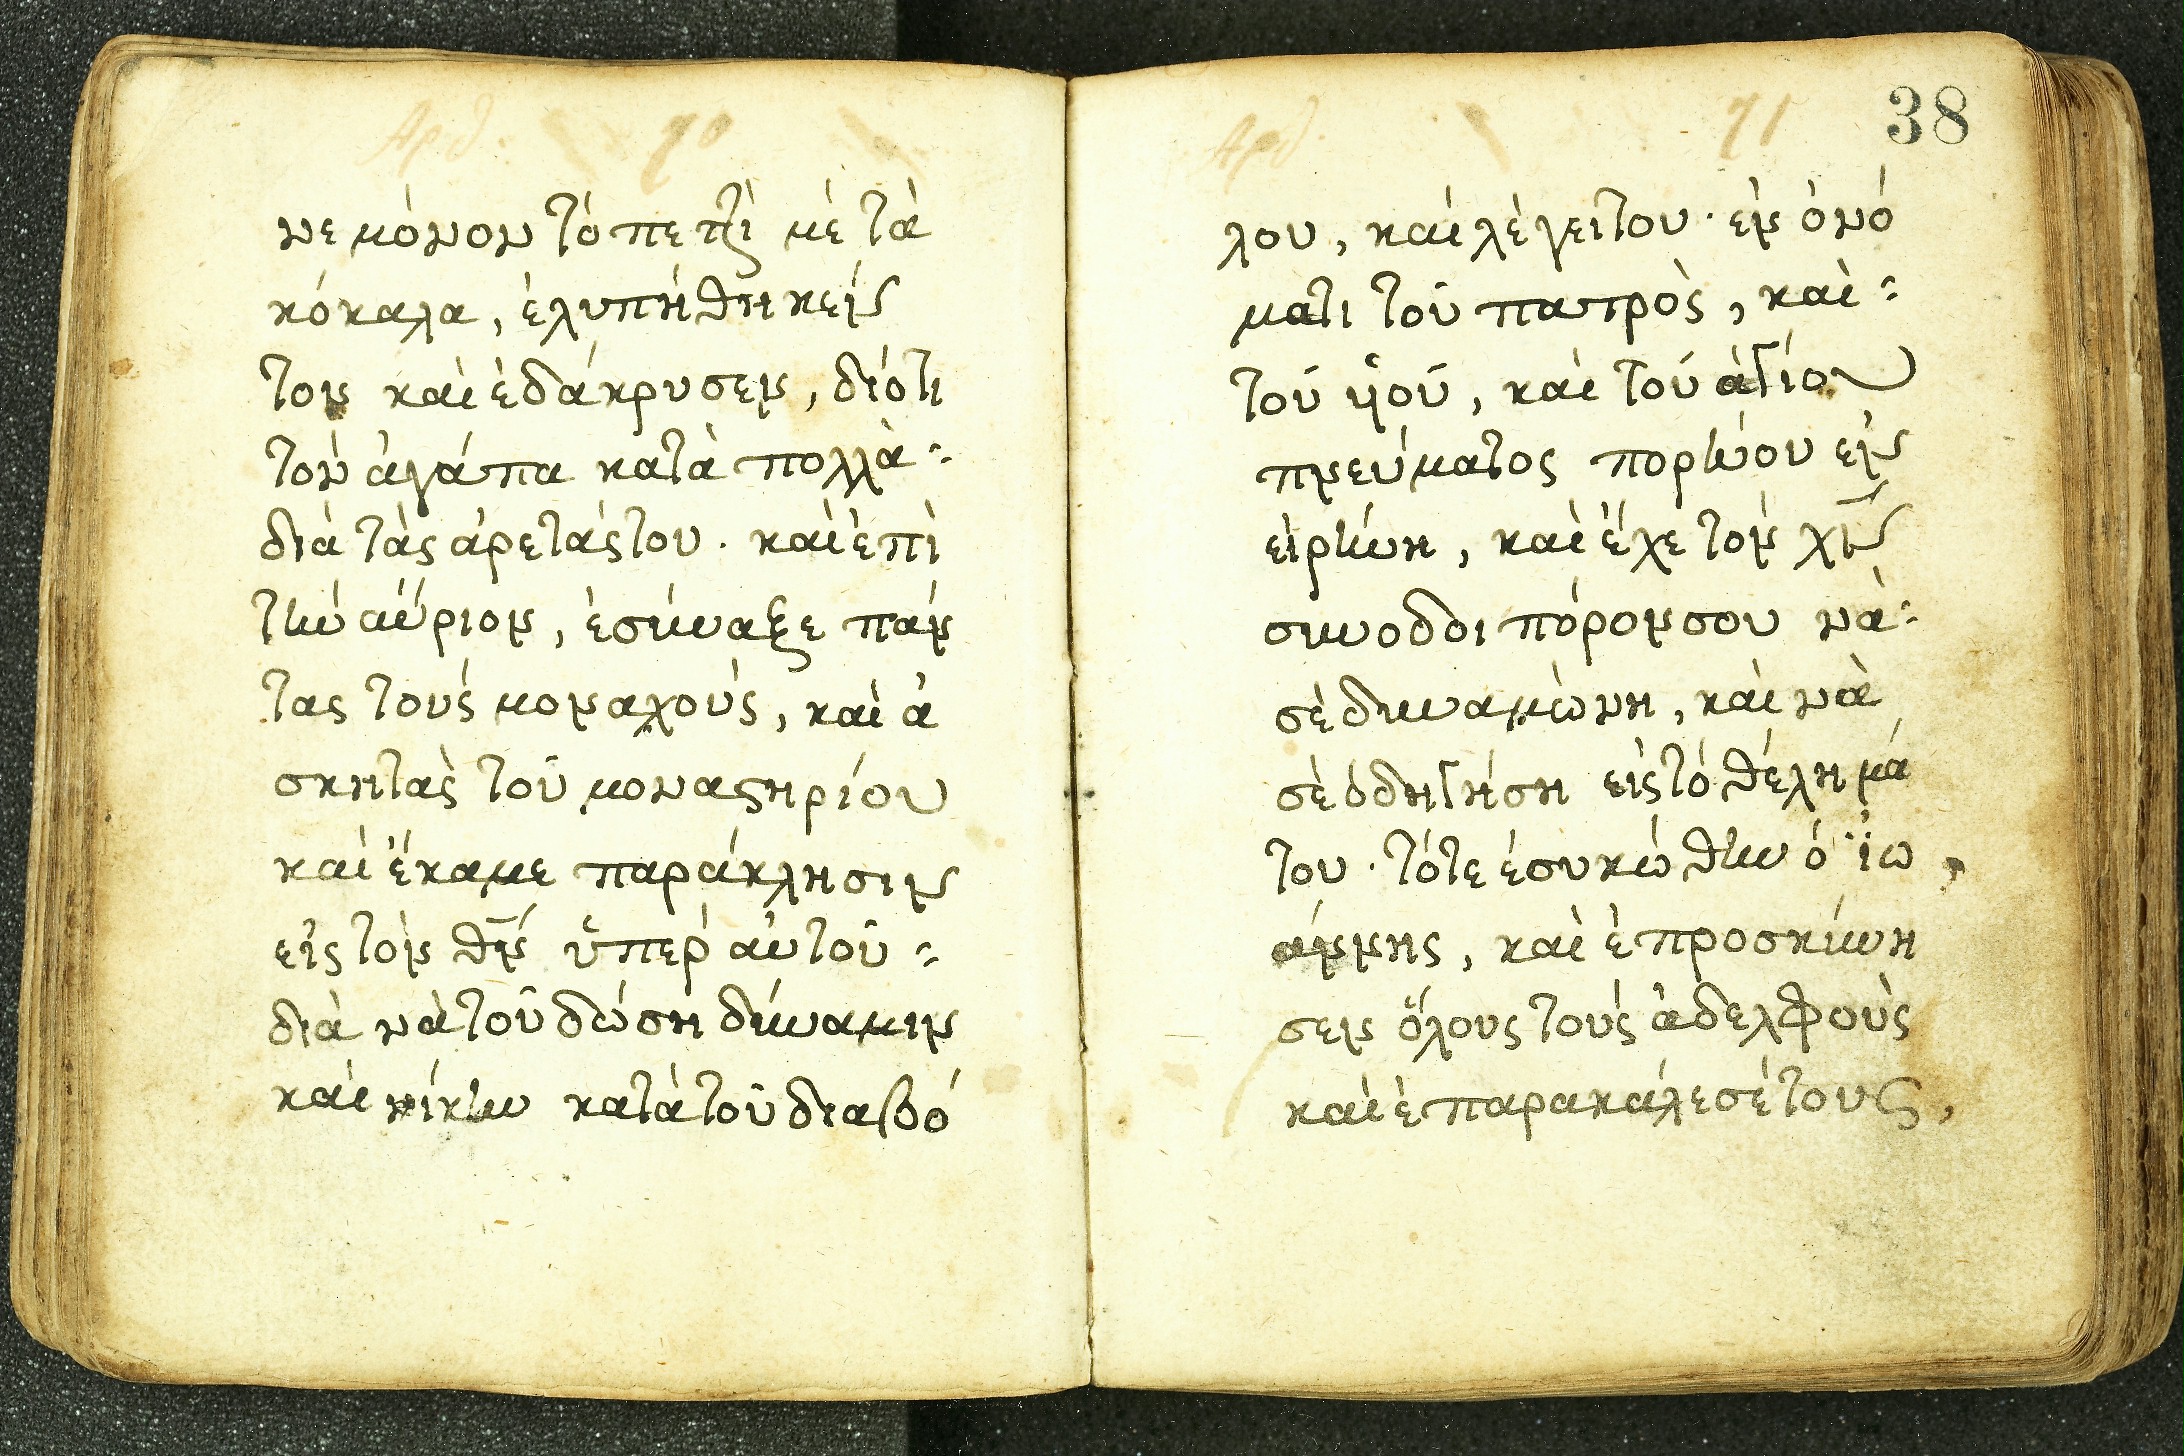 Αρθ. 70
νε μόνον τό πετζὶ μὲ τὰ
κόκαλα, ἐλυπήθηκείν
τον καὶ ἐδάκρυσεν, διότι
τὸν ἀγάπα κατὰ πολλὰ
διὰ τὰς ἀρετάς του. καὶ ἐπὶ
τὴν αὔριον, ἐσύναξε πάν
τας τοὺς μοναχοὺς, καὶ ἀ
σκητὰς τοῦ μοναστηρίου
καὶ ἔκαμε παράκλησιν
εἰς τὸν θν̅ ὕπερ αὐτοῦ
διὰ νὰ τοῦ δώση δύναμιν
καὶ νίκην κατὰ τοῦ διαβό
Αρθ. 71
38
λου, καὶ λέγει του. ἐν ὀνό
ματι τοῦ πατρὸς, καὶ
τοῦ ὑιοῦ, καὶ τοῦ ἁγίου
πνεύματος πορεύου ἐν
εἰρήνη, καὶ ἔχε τὸν χν̅
σύνοδοι πόρον σου νὰ
σὲ δυναμώνη, καὶ νὰ
σὲ ὁδηγήση εἰς τό θέλημά
του. τότε ἐσυκώθην ὁ ἰω
άννης, καὶ ἐπροσκύνη
σεν ὅλους τοὺς ἀδελφοὺς
καὶ ἐπαρακάλεσέ τους,